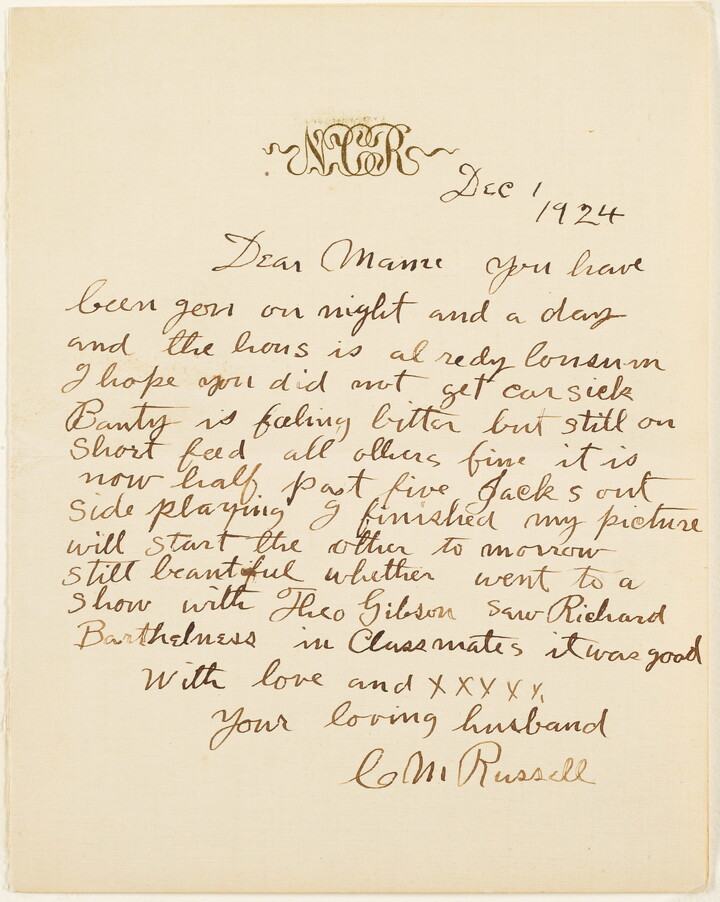 NCR
Dec 1
1924
Dear Mame you have
been gon on night and a day
and the hous is al redy lonsum
I hope you did not get car sick
Banty is feeling bitter but still on
short feed all others fine it is
now half past five Jack s out
side playing I finished my picture
will start the other to morrow
still beautiful whether went to a
show with Theo Gibson saw Richard
Barthelness in Classmates it was good
With love and xxxxx
Your loving husband
C M Russell